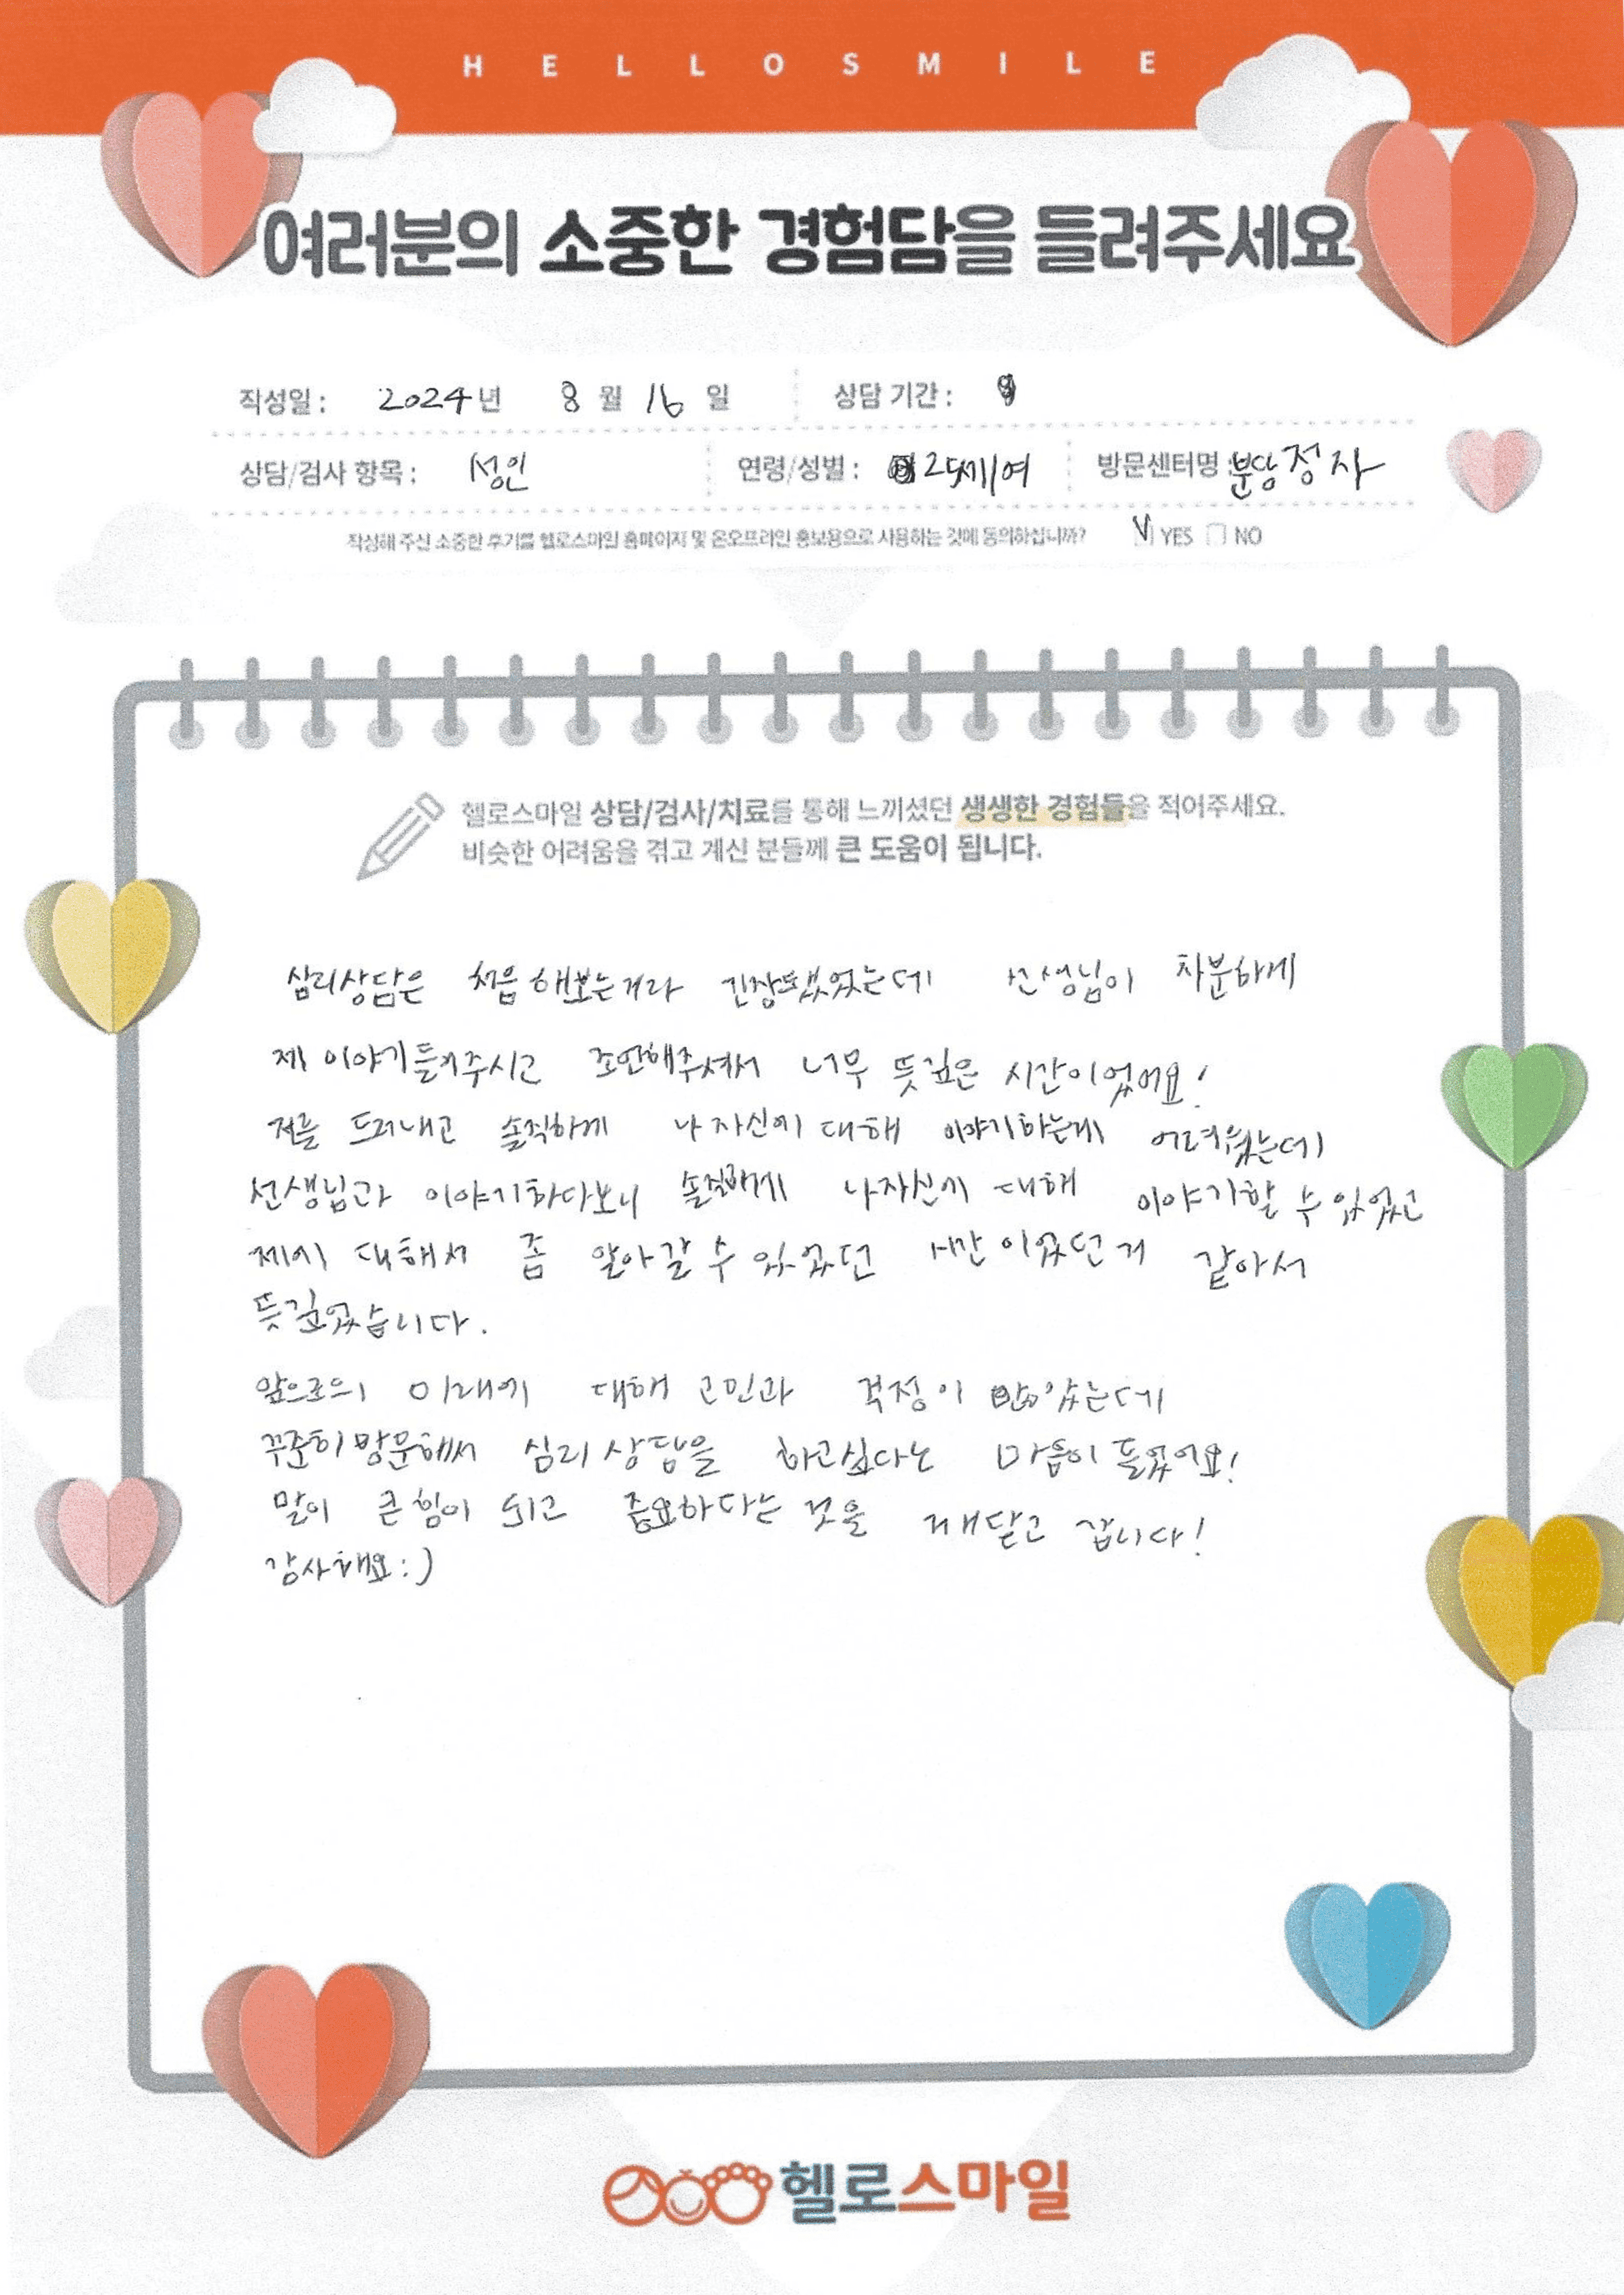 HELLOSMILE
여러분의 소중한 경험담을 들려주세요
작성일 : 2024년 8월 16일 상담 기간 :
상담/검사 항목 : 성인 연령/성별 : 25세/여 방문센터명 : 분당정자
작성해 주신 소중한 후기를 헬로스마일 홈페이지 및 온오프라인 홍보용으로 사용하는 것에 동의하십니까? V YES NO
헬로스마일 상담/검사/치료를 통해 느끼셨던 생생한 경험들을 적어주세요.
비슷한 어려움을 겪고 계신 분들께 큰 도움이 됩니다.
심리상담은 처음 해보는거라 긴장했었는데 선생님이 차분하게
제 이야기 들어주시고 조언해주셔서 너무 뜻깊은 시간이었어요!
저를 드러내고 솔직하게 나 자신에 대해 이야기하는게 어려웠는데
선생님과 이야기하다보니 솔직하게 나자신에 대해 이야기할 수 있었고
제에 대해서 좀 알아갈 수 있었던 시간이었던거 같아서
뜻깊었습니다.
앞으로의 미래에 대해 고민과 걱정이 많았는데
꾸준히 방문해서 심리상담을 하고싶다는 마음이 들었어요!
말이 큰 힘이 되고 중요하다는 것을 깨닫고 갑니다!
감사해요:)
헬로스마일